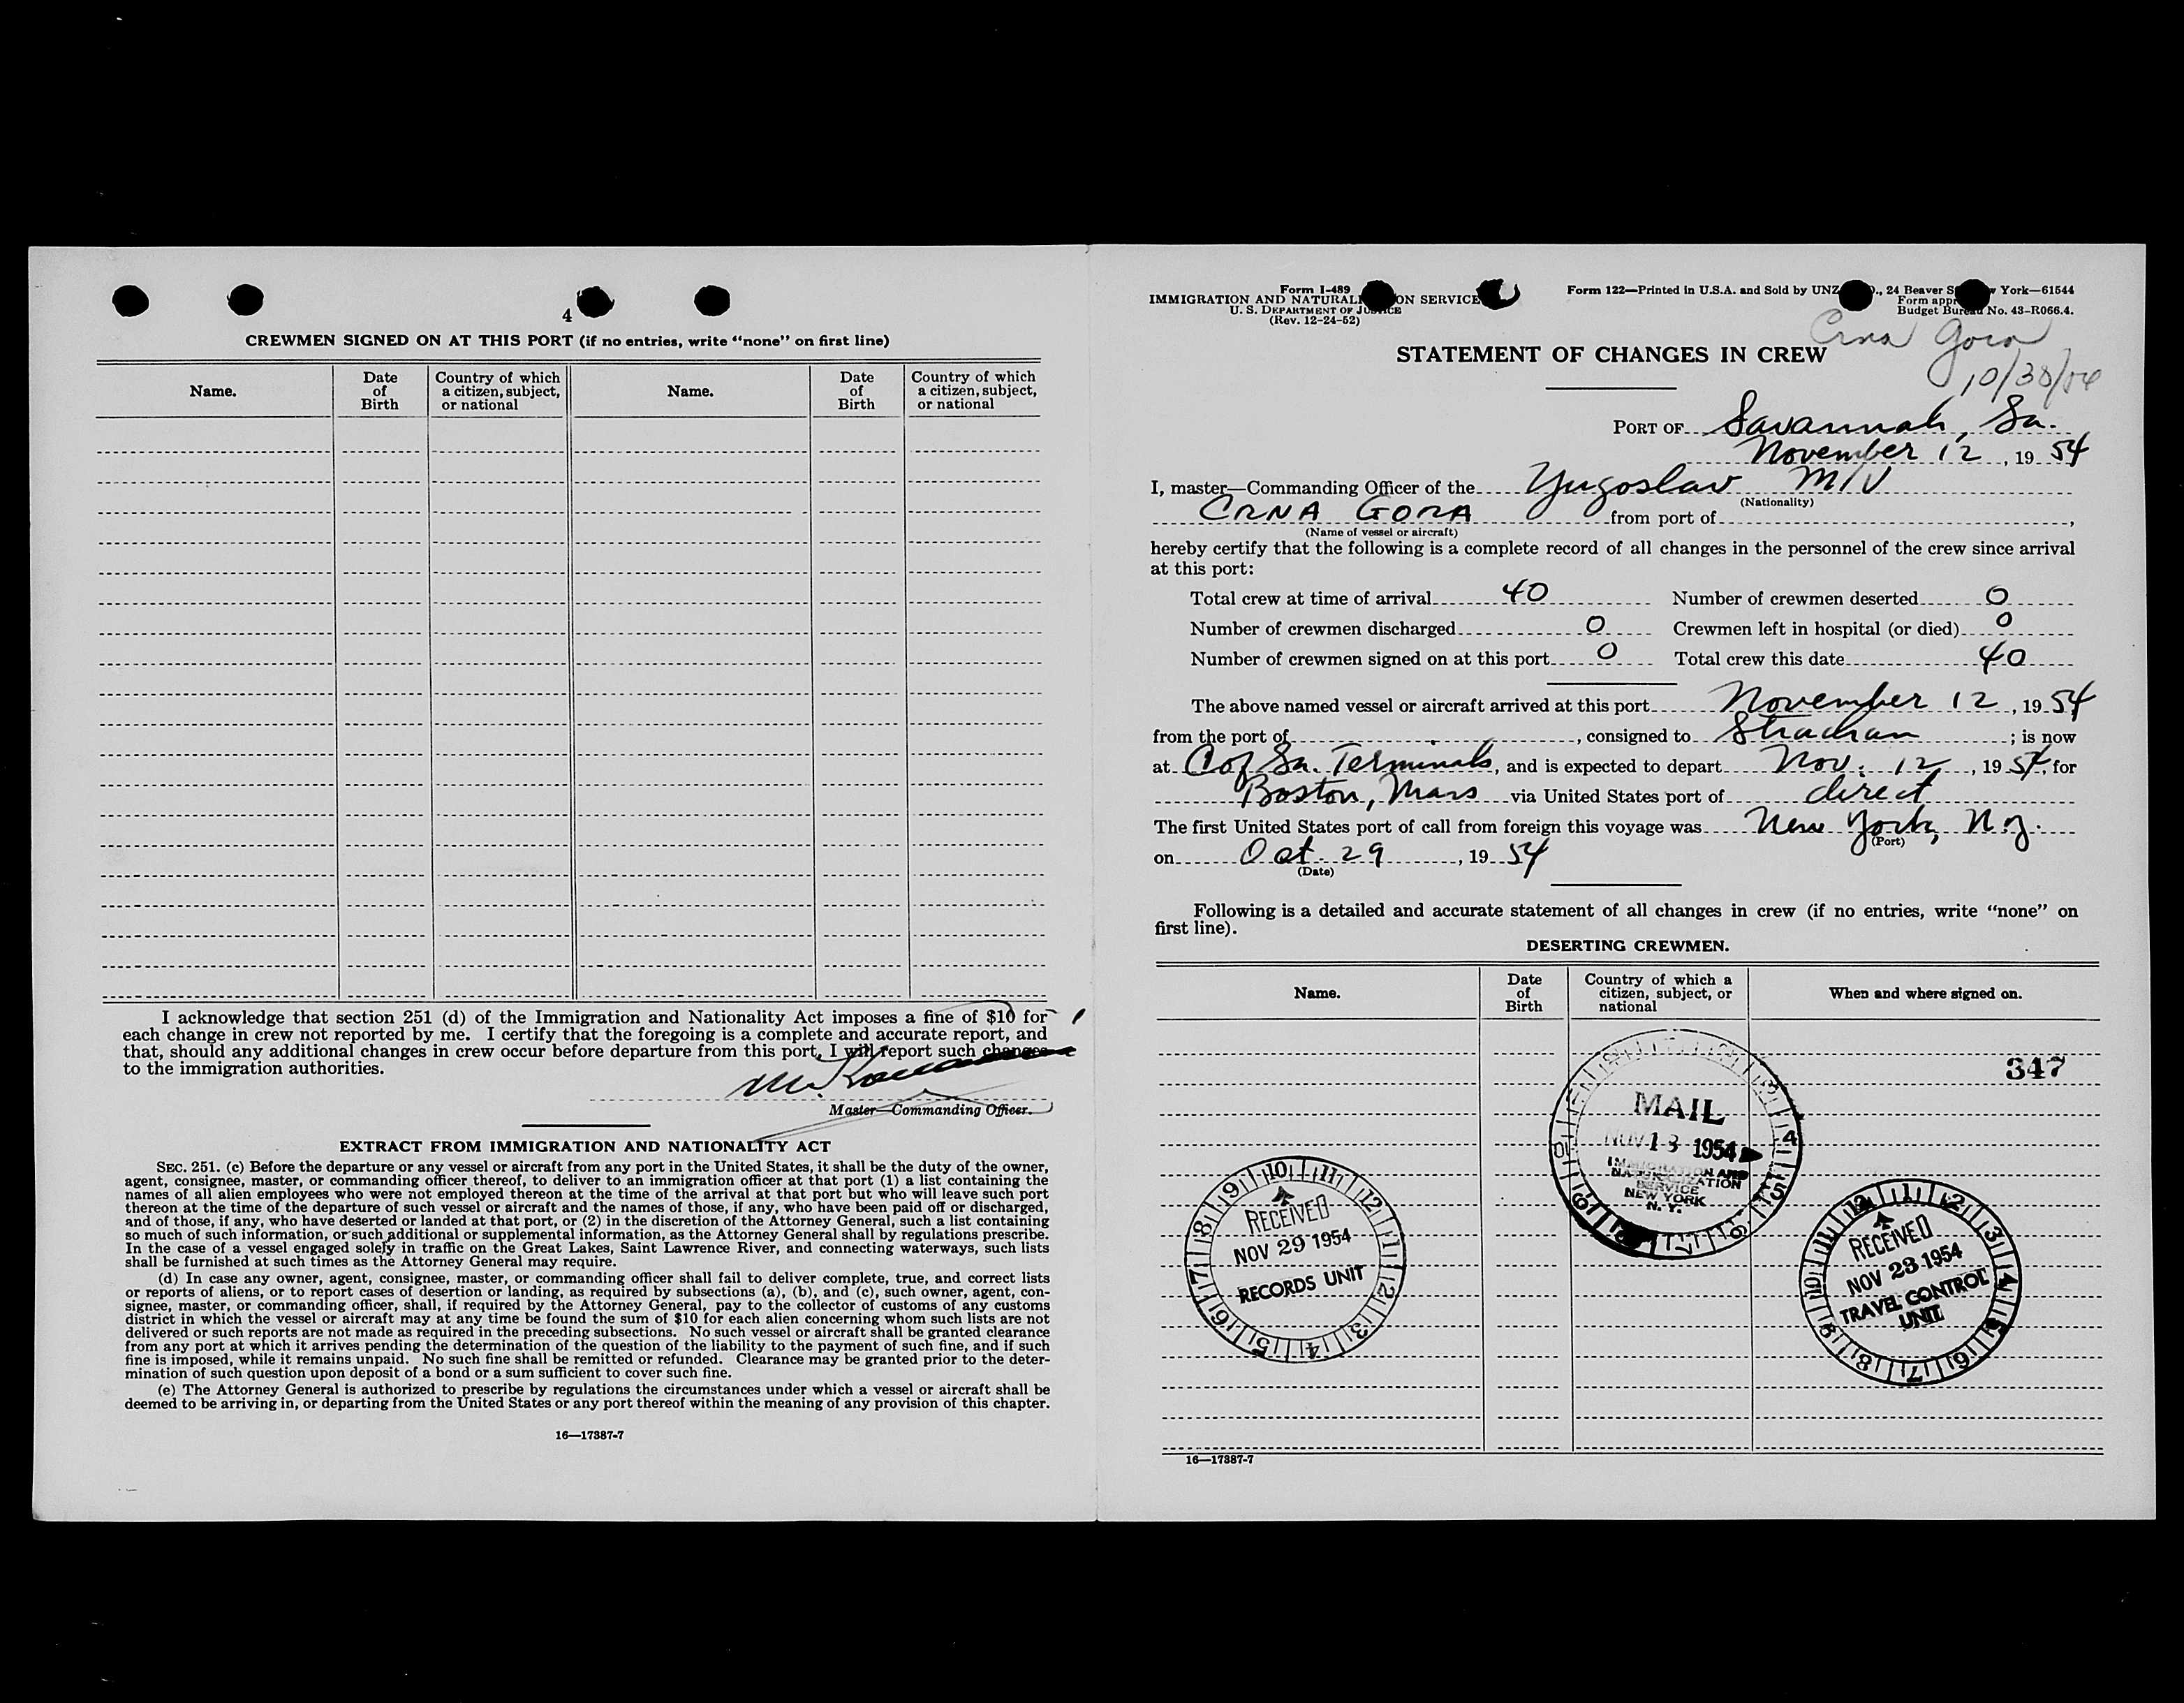 4
CREWMEN SIGNED ON AT THIS PORT (if no entries, write “none” on first line)
Name.
Date of Birth
Country of which a citizen, subject, or national
Name.
Date of Birth
Country of which a citizen, subject, or national
I acknowledge that section 251 (d) of the Immigration and Nationality Act imposes a fine of $10 for
each change in crew not reported by me. I certify that the foregoing is a complete and accurate report, and
that, should any additional changes in crew occur before departure from this port, I will report such changes
to the immigration authorities.
Master—Commanding Officer.
EXTRACT FROM IMMIGRATION AND NATIONALITY ACT
SEC. 251. (c) Before the departure or any vessel or aircraft from any port in the United States, it shall be the duty of the owner,
agent, consignee, master, or commanding officer thereof, to deliver to an immigration officer at that port (1) a list containing the
names of all alien employees who were not employed thereon at the time of the arrival at that port but who will leave such port
thereon at the time of the departure of such vessel or aircraft and the names of those, if any, who have been paid off or discharged,
and of those, if any, who have deserted or landed at that port, or (2) in the discretion of the Attorney General, such a list containing
so much of such information, or such additional or supplemental information, as the Attorney General shall by regulations prescribe.
In the case of a vessel engaged solely in traffic on the Great Lakes, Saint Lawrence River, and connecting waterways, such lists
shall be furnished at such times as the Attorney General may require.
(d) In case any owner, agent, consignee, master, or commanding officer shall fail to deliver complete, true, and correct lists
or reports of aliens, or to report cases of desertion or landing, as required by subsections (a), (b), and (c), such owner, agent, con-
signee, master, or commanding officer, shall, if required by the Attorney General, pay to the collector of customs of any customs
district in which the vessel or aircraft may at any time be found the sum of $10 for each alien concerning whom such lists are not
delivered or such reports are not made as required in the preceding subsections. No such vessel or aircraft shall be granted clearance
from any port at which it arrives pending the determination of the question of the liability to the payment of such fine, and if such
fine is imposed, while it remains unpaid. No such fine shall be remitted or refunded. Clearance may be granted prior to the deter-
mination of such question upon deposit of a bond or a sum sufficient to cover such fine.
(e) The Attorney General is authorized to prescribe by regulations the circumstances under which a vessel or aircraft shall be
deemed to be arriving in, or departing from the United States or any port thereof within the meaning of any provision of this chapter.
16—17887-7
Form I-489
IMMIGRATION AND NATURALI ON SERVICE
U. S. DEPARTMENT OF JUSTICE
(Rev. 12-24-52)
Form 122—Printed in U.S.A. and Sold by UNZ ., 24 Beaver S York—61544
Form appr
Budget Bureau No. 43-R066.4.
Crna Gora
STATEMENT OF CHANGES IN CREW
PORT OF Savannah, Ga.
November 12, 19 54
I, master—Commanding Officer of the Yugoslav M/V
(Nationality)
CRNA GORA from port of ,
(Name of vessel or aircraft)
hereby certify that the following is a complete record of all changes in the personnel of the crew since arrival
at this port:
Total crew at time of arrival 40 Number of crewmen deserted 0
Number of crewmen discharged 0 Crewmen left in hospital (or died) 0
Number of crewmen signed on at this port 0 Total crew this date 40
The above named vessel or aircraft arrived at this port November 12, 19 54
from the port of , consigned to Strachan ; is now
at C of Ga. Terminals, and is expected to depart Nov. 12, 19 54, for
Boston, Mass via United States port of direct
The first United States port of call from foreign this voyage was New York, N.Y.
(Port)
on Oct. 29, 19 54
(Date)
Following is a detailed and accurate statement of all changes in crew (if no entries, write “none” on
first line).
DESERTING CREWMEN.
Name.
Date of Birth
Country of which a citizen, subject, or national
When and where signed on.
347
MAIL
NOV 13 1954
IMMIGRATION AND
NATURALIZATION
SERVICE
NEW YORK
N. Y.
RECEIVED
NOV 29 1954
RECORDS UNIT
RECEIVED
NOV 23 1954
TRAVEL CONTROL
UNIT
16—17887-7